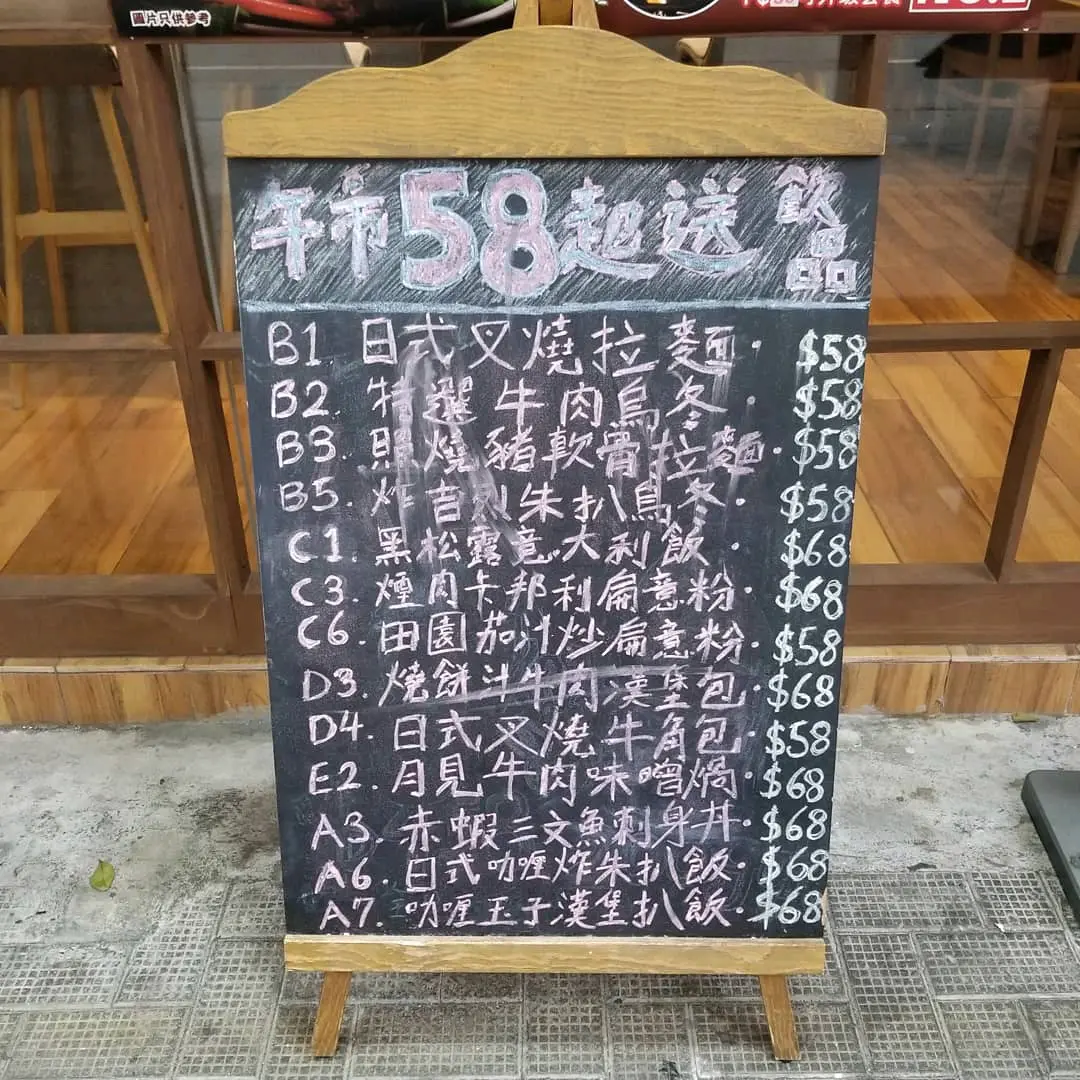 圖片只供參考
午市58起送飲品
B1 日式叉燒拉麵 · $58
B2. 特選牛肉烏冬 · $58
B3. 照燒豬軟骨拉麵 · $58
B5. 炸吉列朱扒烏冬 · $58
C1. 黑松露意大利飯 · $68
C3. 煙肉卡邦利扁意粉 · $68
C6. 田園茄汁炒扁意粉 · $58
D3. 燒餅汁牛肉漢堡包 · $68
D4. 日式叉燒牛角包 · $58
E2. 月見牛肉味噌煱 $68
A3. 赤蝦三文魚刺身丼 · $68
A6. 日式咖喱炸朱扒飯 · $68
A7. 咖喱玉子漢堡扒飯 · $68